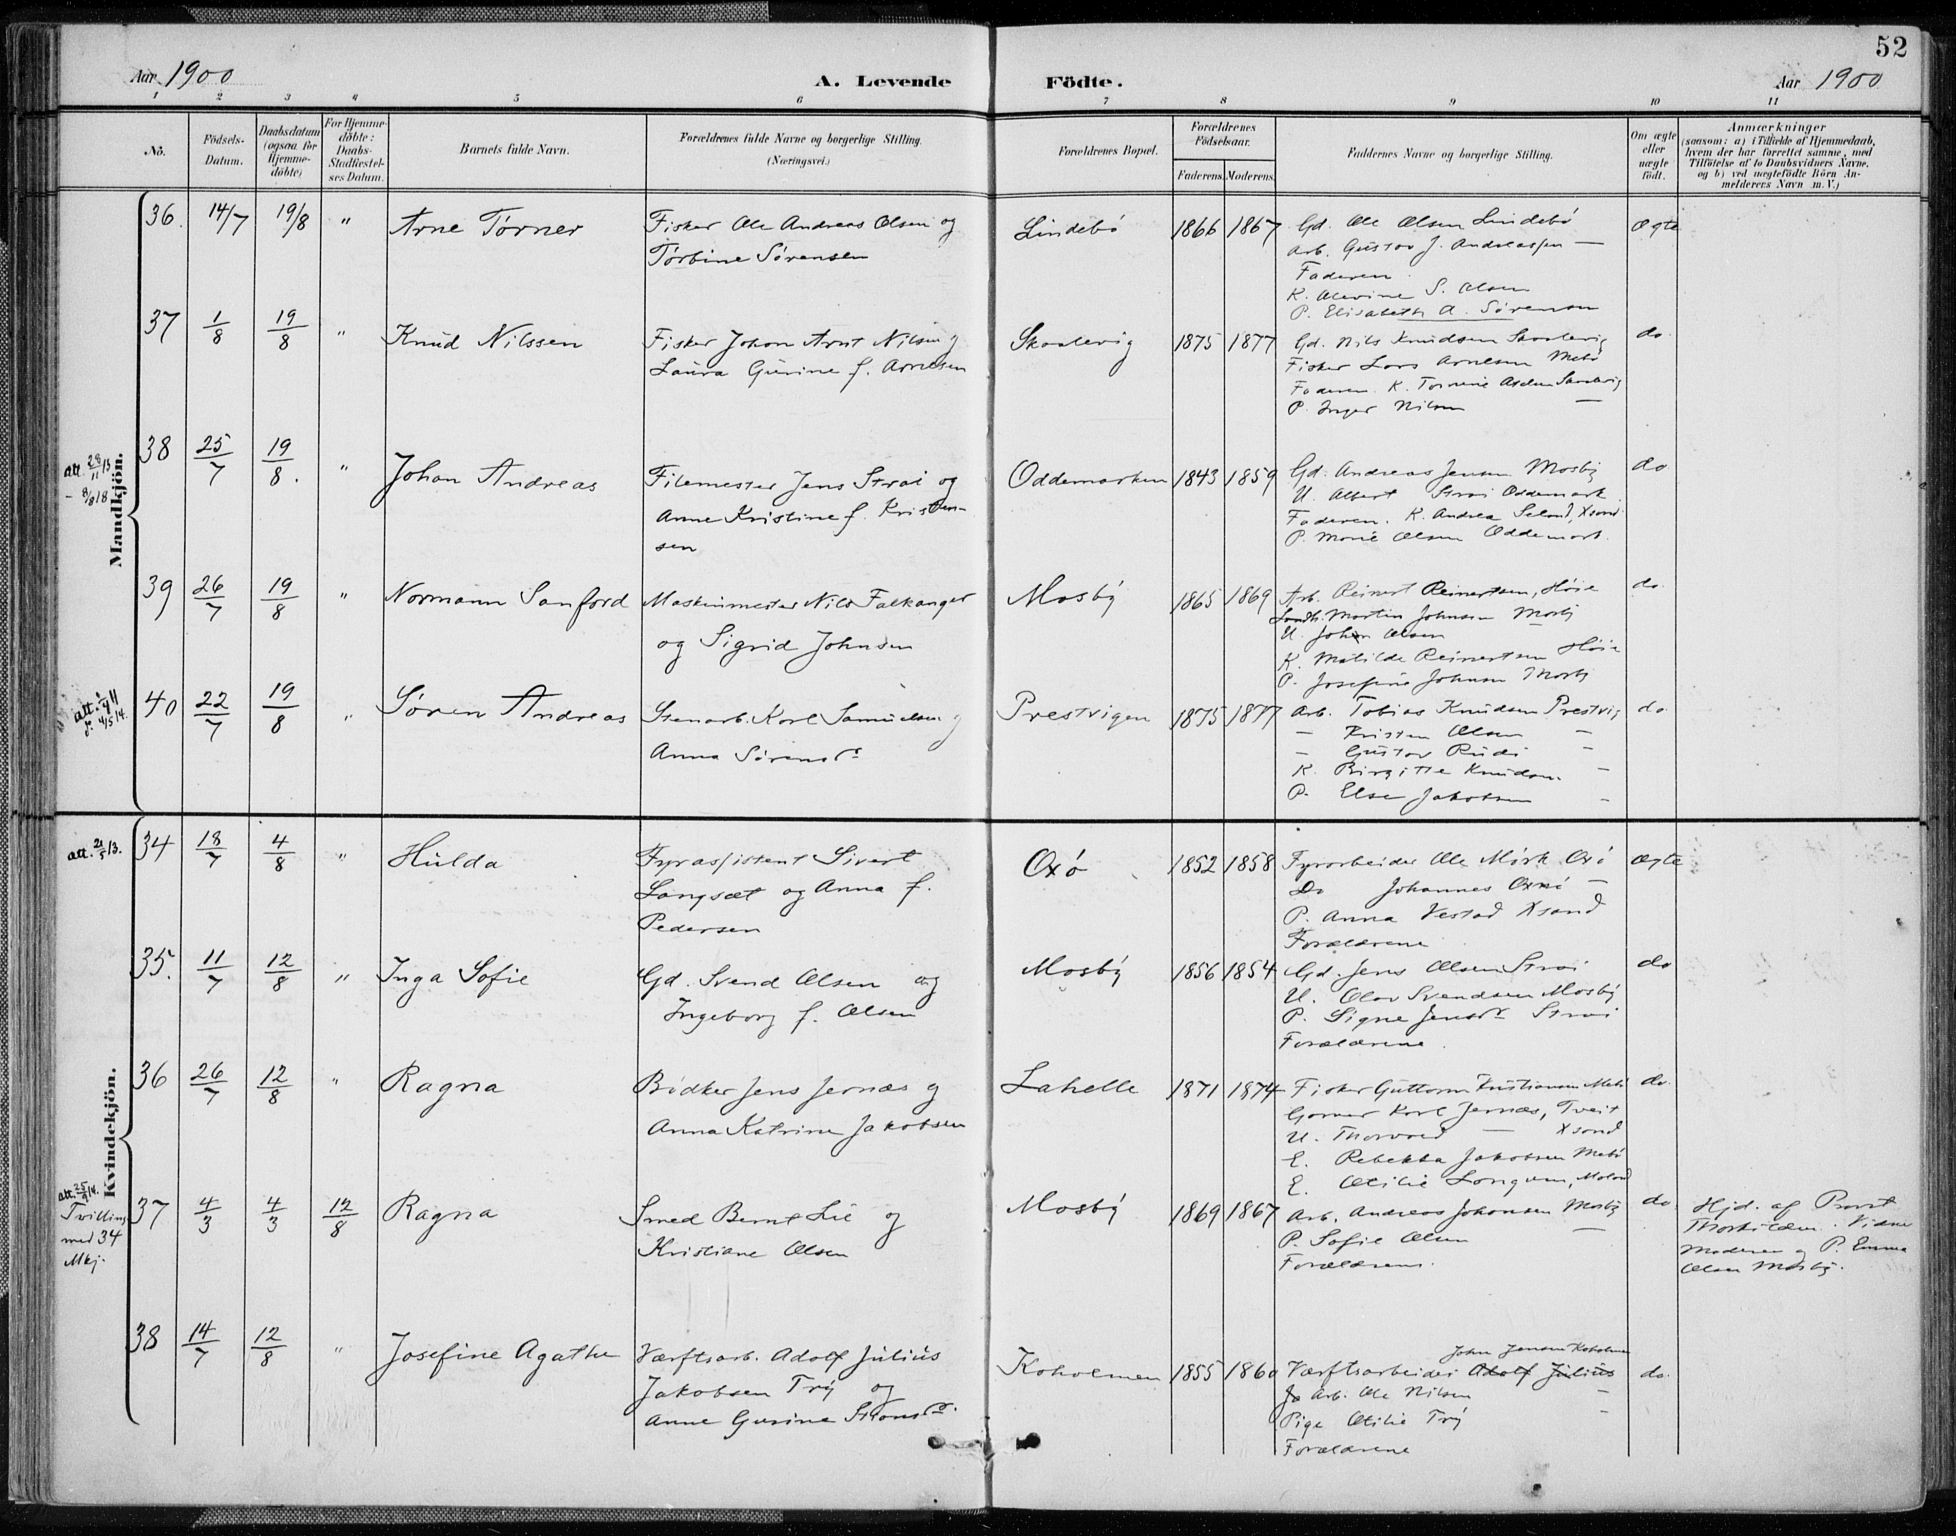 52
Aar 1900 A. Levende Födte. Aar 1900
1 2 3 4 5 6 7 8 9 10 11
No. Födsels-Datum. Daabsdatum (ogsaa for Hjemme-döbte) For Hjemme-döbte: Daabs-Stadfæstel-ses Datum. Barnets fulde Navn. Forældrenes fulde Navne og borgerlige Stilling. (Næringsvei.) Forældrenes Bopæl. Forældrenes Födselsaar. Faderens. Moderens. Faddernes Navne og borgerlige Stilling. Om ægte eller uægte födt. Anmærkninger (saasom: a) i Tilfælde af Hjemmedaab, hvem der har forrettet samme, med Tilföielse af to Daabsvidners Navne, og b) ved uægtefödte Börn An-melderens Navn m. V.)
Mandkjön.
36. 14/7 19/8 " Arne Tørner Fisker Ole Andreas Olsen og Lindebø 1866 1867 Gd. Ole Olsen Lindebø ægte
Tørbine Sørensen
Arb. Gustav J. Andreassen —
Faderen
K. Olevine S. Olsen
P. Elisabeth A. Sørensen
37 1/8 19/8 " Knud Nilssen Fisker Johan Arnt Nilsen og Skaalevig 1875 1877 Gd. Nils Knudsen Skaalevig do
Laura Gurine f. Arnesen
Fisker Lars Arnesen Mebø
Faderen. K.
P. Inger Nilsen —
att. 28/11 13
- 8/8 18
38 25/7 19/8. " Johan Andreas Filemester Jens Strai og Oddemarken 1843 1859 Gd. Andreas Jensen Mosby do
Anne Kristine f. Kristen-
sen
U. Albert Strai Oddemark
Faderen. K. Andrea Xsand
P. Marie Olsen Oddemark.
39 26/7 19/8 " Normann Sanford Maskinmester Nils Falkanger Mosby 1865 1869 Arb. Reinert Reinertsen, Høie do.
og Sigrid Johnsen
Martin Johnsen Mosby
U. Johan Olsen
K. Matilde Reinertsen Høie
P. Josefine Johnsen Mosby
40 22/7 19/8 " Søren Andreas Stenarb. Karl Samuelsen og Prestvigen 1875 1877 Arb. Tobias Knudsen Prestvig do
Anna Sørensdr
— Kristen Olsen —
— Gustav Rudi —
K. Birgitte Knudsen. —
P. Else Jakobsen —
Kvindekjön.
att. 21/5 13.
34 18/7 4/8 " Hulda Fyrassistent Sivert Oxø 1852 1858 Fyrarbeider Ole Mørk Oxø ægte
Langsæt og Anna f.
Pedersen
Do Johannes —
P. Anna Vestad Xsand
Forældrene
35. 11/7 12/8 " Inga Sofie Gd. Svend Olsen og Mosby 1856 1854 Gd. Jens Olsen Strai do
Ingeborg f. Olsen
U. Olav Svendsen Mosby
P. Signe Jensdr Strai
Forældrene.
36 26/7 12/8 " Ragna Bødker Jens Jernæs og Lahelle 1871 1874 Fisker Guttorm Kristiansen Mebø do.
Anna Katrine Jakobsen
Karl Jernæs, Tveit
U. Thorvald — Xsand
E. Rebekka Jakobsen Mebø
E. Otilie
att. 25/9 14.
Tvilling
med 34
Mkj.
37 4/3 4/3 12/8 Ragna Smed Bernt Lie og Mosby 1869 1867 Arb. Andreas Johansen Mosby do.
Kristiane Olsen
P. Sofie Olsen —
Forældrene.
Hjd. af Provst
Thorkildsen. Vidne
Moderen og P. Emma
Olsen Mosby.
38 14/7 12/8 " Josefine Agathe Værftsarb. Adolf Julius Koholmen 1855 1860 Værftsarbeider Adolf Julius do.
John Jensen Koholmen
Jakobsen Try og
Anne Gurine
Ja Arb. Ole Nilsen —
Pige Otilie Try —
Forældrene